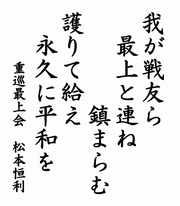 我が戦友ら
最上と連ね
鎮まらむ
護りて給え
永久に平和を
重巡最上会　松本恒利